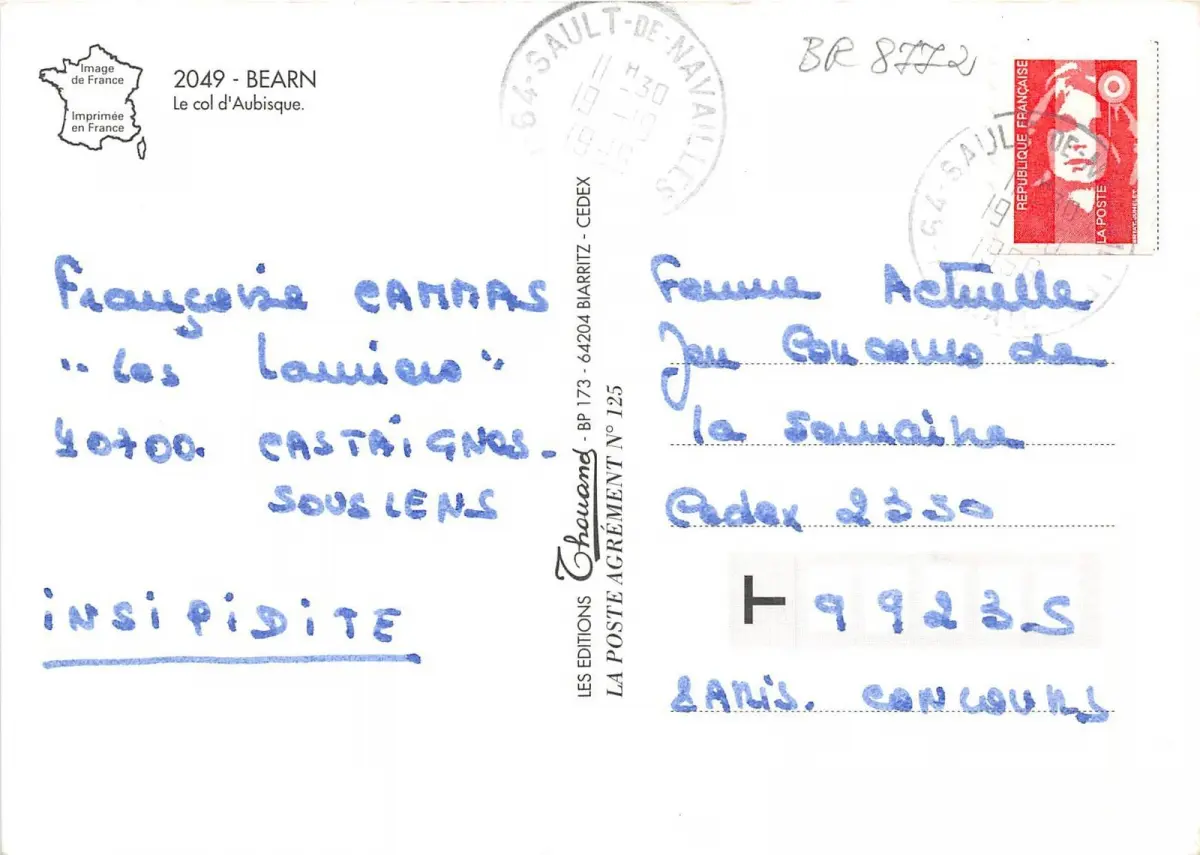 Image
de France
Imprimée
en France
2049 - BEARN
Le col d'Aubisque.
64-SAULT-DE-NAVAILLES
11 H30
BR 8772
REPUBLIQUE FRANÇAISE
LA POSTE
64-SAULT-DE-N
Françoise CAMMAS
"Les Lauriers"
40700. CASTAIGNOS-
SOUSLENS
INSIPIDITE
LES EDITIONS Thouand - BP 173 - 64204 BIARRITZ - CEDEX
LA POSTE AGRÉMENT N° 125
Femme Actuelle
Jeu Concours de
la Semaine
Cedex 2350
T 99235
PARIS. CONCOURS